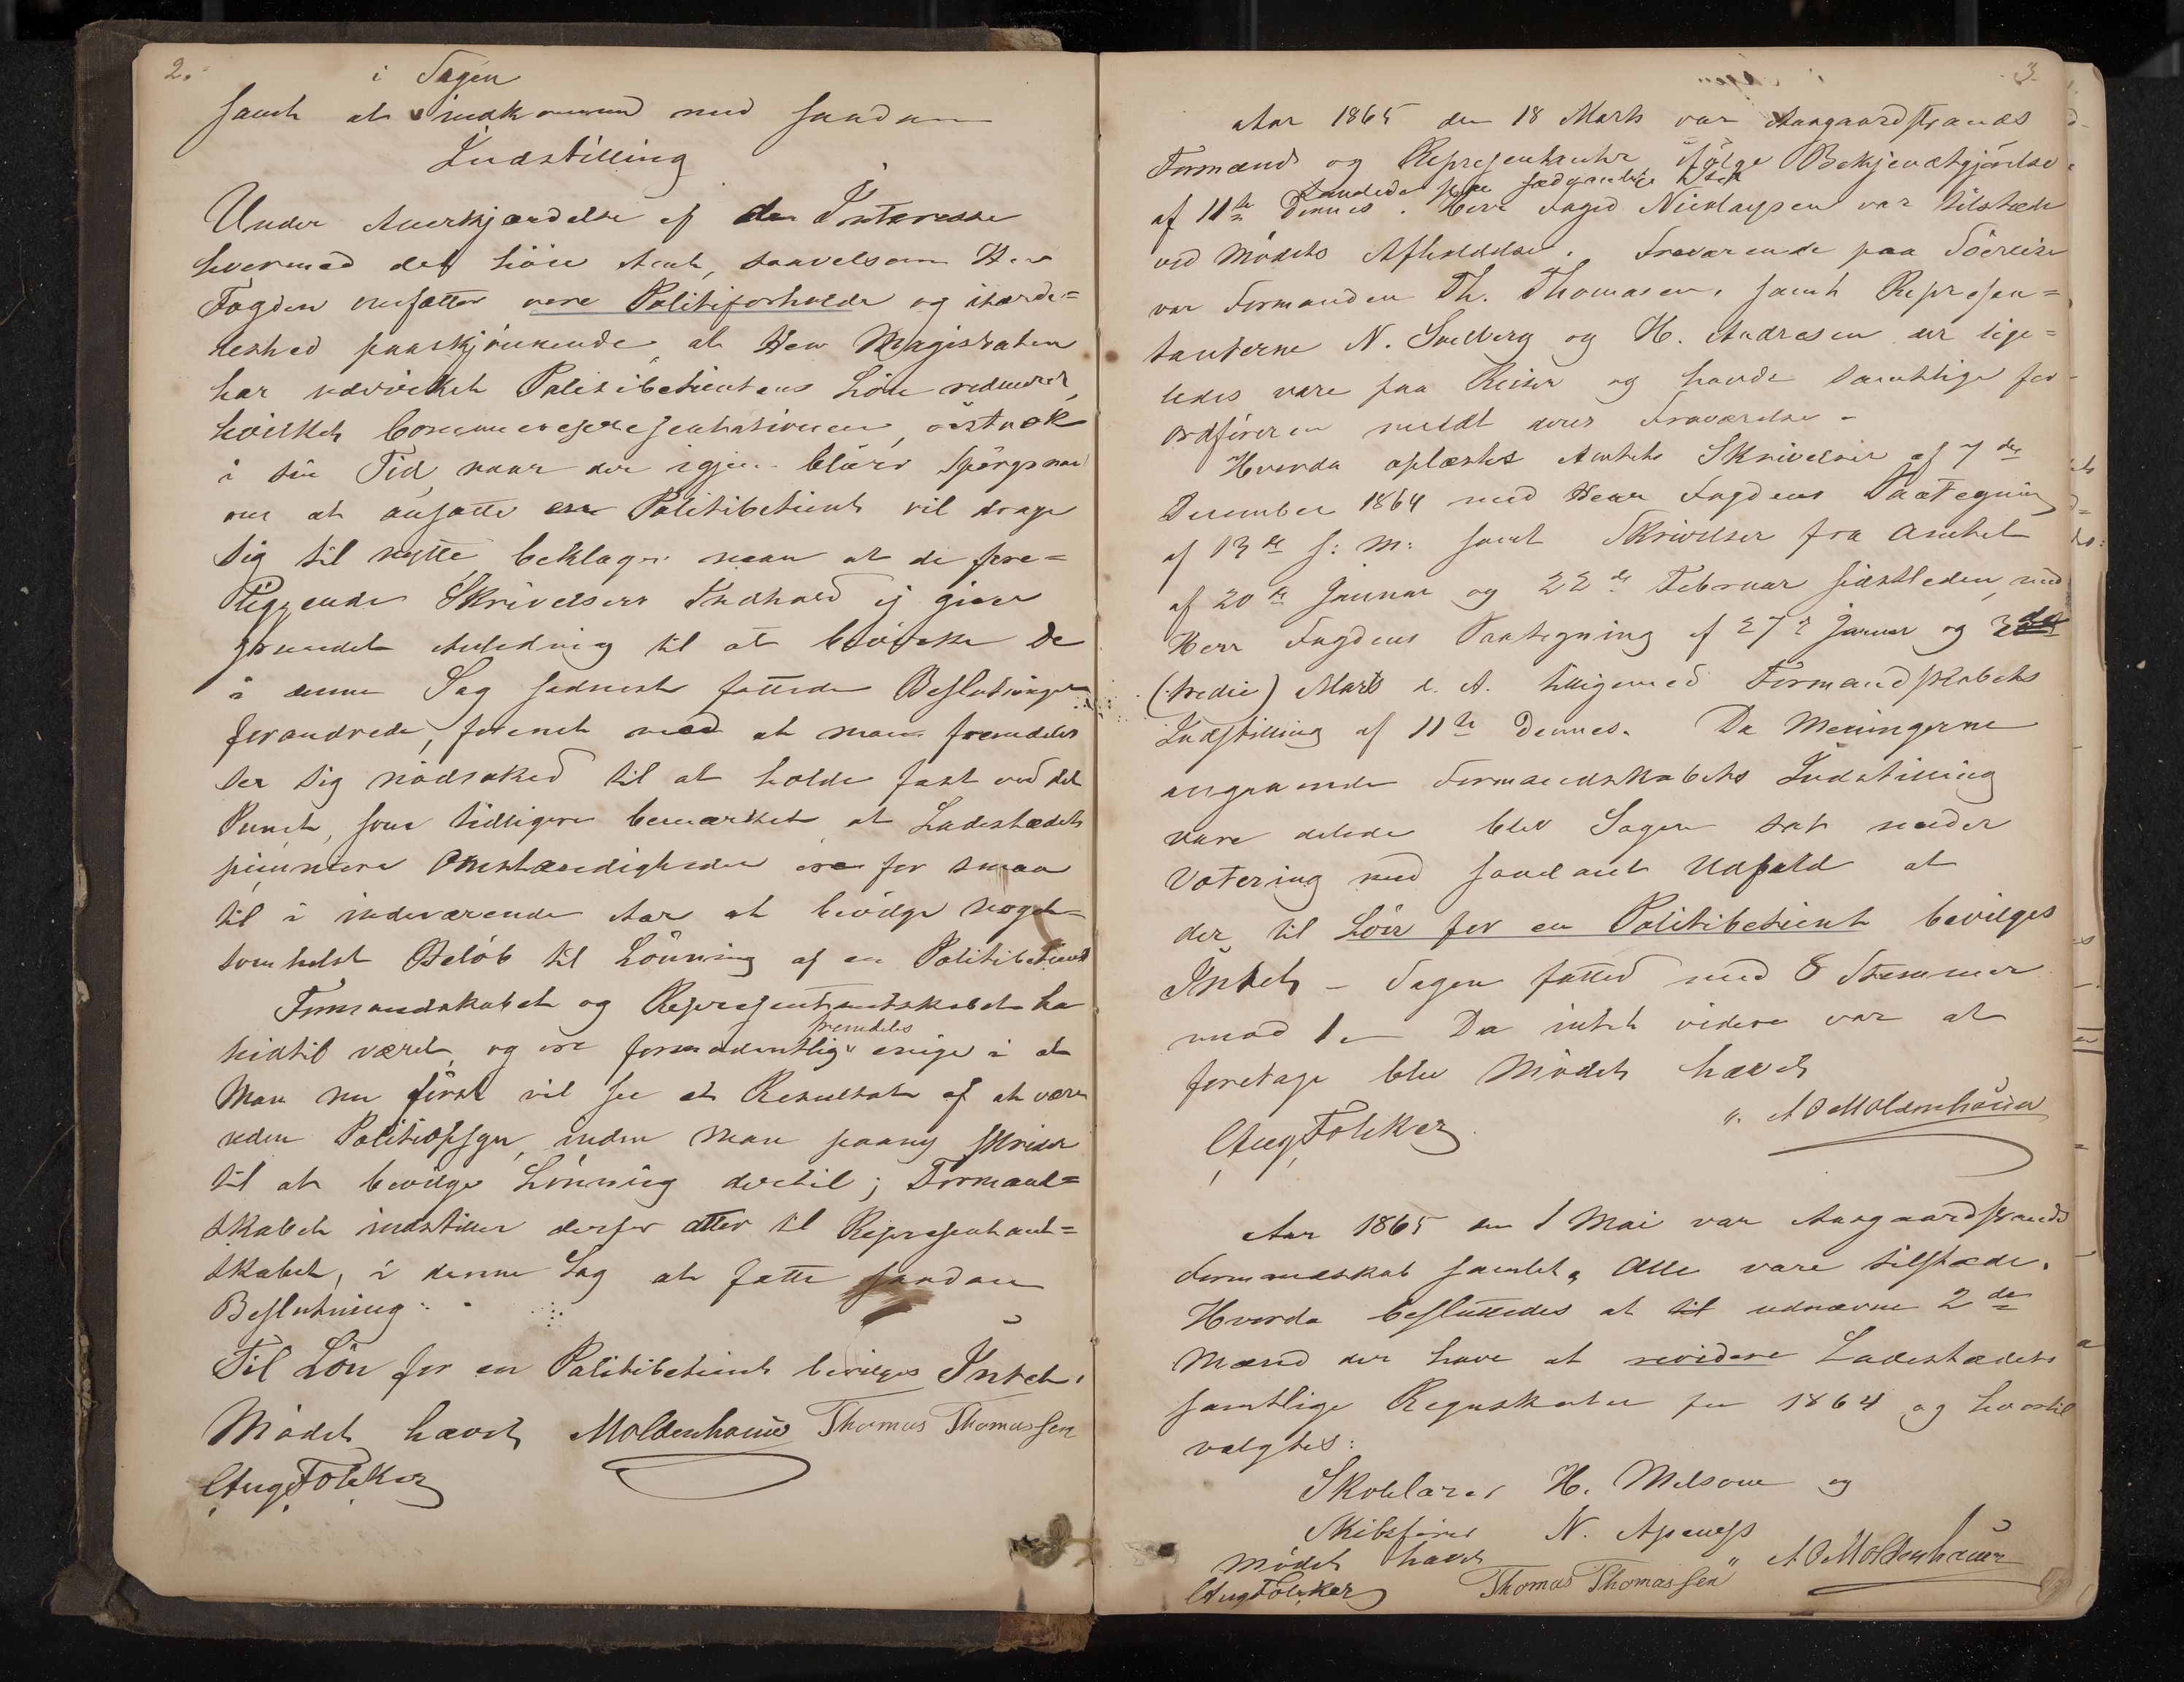 2.
i Sagen
samt at indkomme med saadan
Indstilling
Under Anerkjendelse af den Interesse
hvormed det høie Amt, saavelsom Herr
Fogden omfatter vore Politiforholde og isærde=
leshed paaskjønnende, at Herr Magistraten
har udvirket Politibetientens Løn reduceret,
hvilket Communerepresentationen, vistnok
i sin Tid, naar der igjen bliver Spørgsmaal
om at ansætte en Politibetient vil drage
sig til nytte, beklager man at de fore=
liggende Skrivelsers Indhold ej giver
grundet Anledning til at bevirke de
i denne Sag sednest fattede Beslutninger
forandrede, forenet med at man fremdeles
ser sig nødsaked til at holde fast ved det
Punct, som tidligere bemærket at Ladestædets
pecuniere Omstændigheder ere for smaa
til i indeværende Aar at bevilge noget=
somhelst Beløb til Lønning af en Politibetient
Formandskabet og Representantskabet ha
hidtil været, og ere formodentlig fremdeles enige i at
Man nu først vil see et Resultat af at være
uden Politiopsyn, inden Man paany skrider
til at bevilge Lønning dertil; Formand=
skabet indstiller derfor atter til Representant=
skabet, i denne Sag at fatte saadan
Beslutning:
Til Løn for en Politibetient bevilges Intet.
Mødet hævet Moldenhauer Thomas Thomassen
Aug Folcker
3.
Aar 1865 den 18 Marts var Aasgaardstrands
Formænd og Representanter ifølge Bekjendtgjørelse
af 11te Dennes. samlede paa sædvanlige Sted
Herr Foged Nicolaysen var tilstæde
ved Mødets Afholdelse. Fraværende paa Søereise
var Formanden Th. Thomasen, samt Represen=
tanterne N. Solberg og H. Andresen der lige=
ledes vare paa Reiser og havde samtlige for
Ordføreren meldt deres Fraværelse -
Hvorda oplæstes Amtets Skrivelse af 7de
December 1864 med Herr Fogdens Paategning
af 13de s: M: samt Skrivelser fra Amtet
af 20de Januar og 22de Februar sidstleden, med
Herr Fogdens Paategning af 27de Januar og 3die
(tredie) Marts d. A. tilligemed Formandskabets
Indstilling af 11te Dennes. Da Meningerne
angaaende Formandskabets Indstilling
vare delede blev Sagen sat under
Votering med saadant Udfald at
der til Løn for en Politibetient bevilges
Intet - Sagen fatted med 8 Stemmer
mod 1 - Da intet videre var at
foretage blev Mødet hævet
Aug Folcker " A O Moldenhauer
Aar 1865 den 1 Mai var Aasgaardstrands
Formandskab samlet, Alle vare tilstæde.
Hvorda besluttedes at til udnævne 2de
Mænd der have at revidere Ladestædets
samtlige Regnskaber for 1864 og hvortil
valgtes:
Skolelærer H. Melsom og
Skibsfører N. Apenæs
Mødet hævet " A O Moldenhauer
Aug Folcker Thomas Thomassen